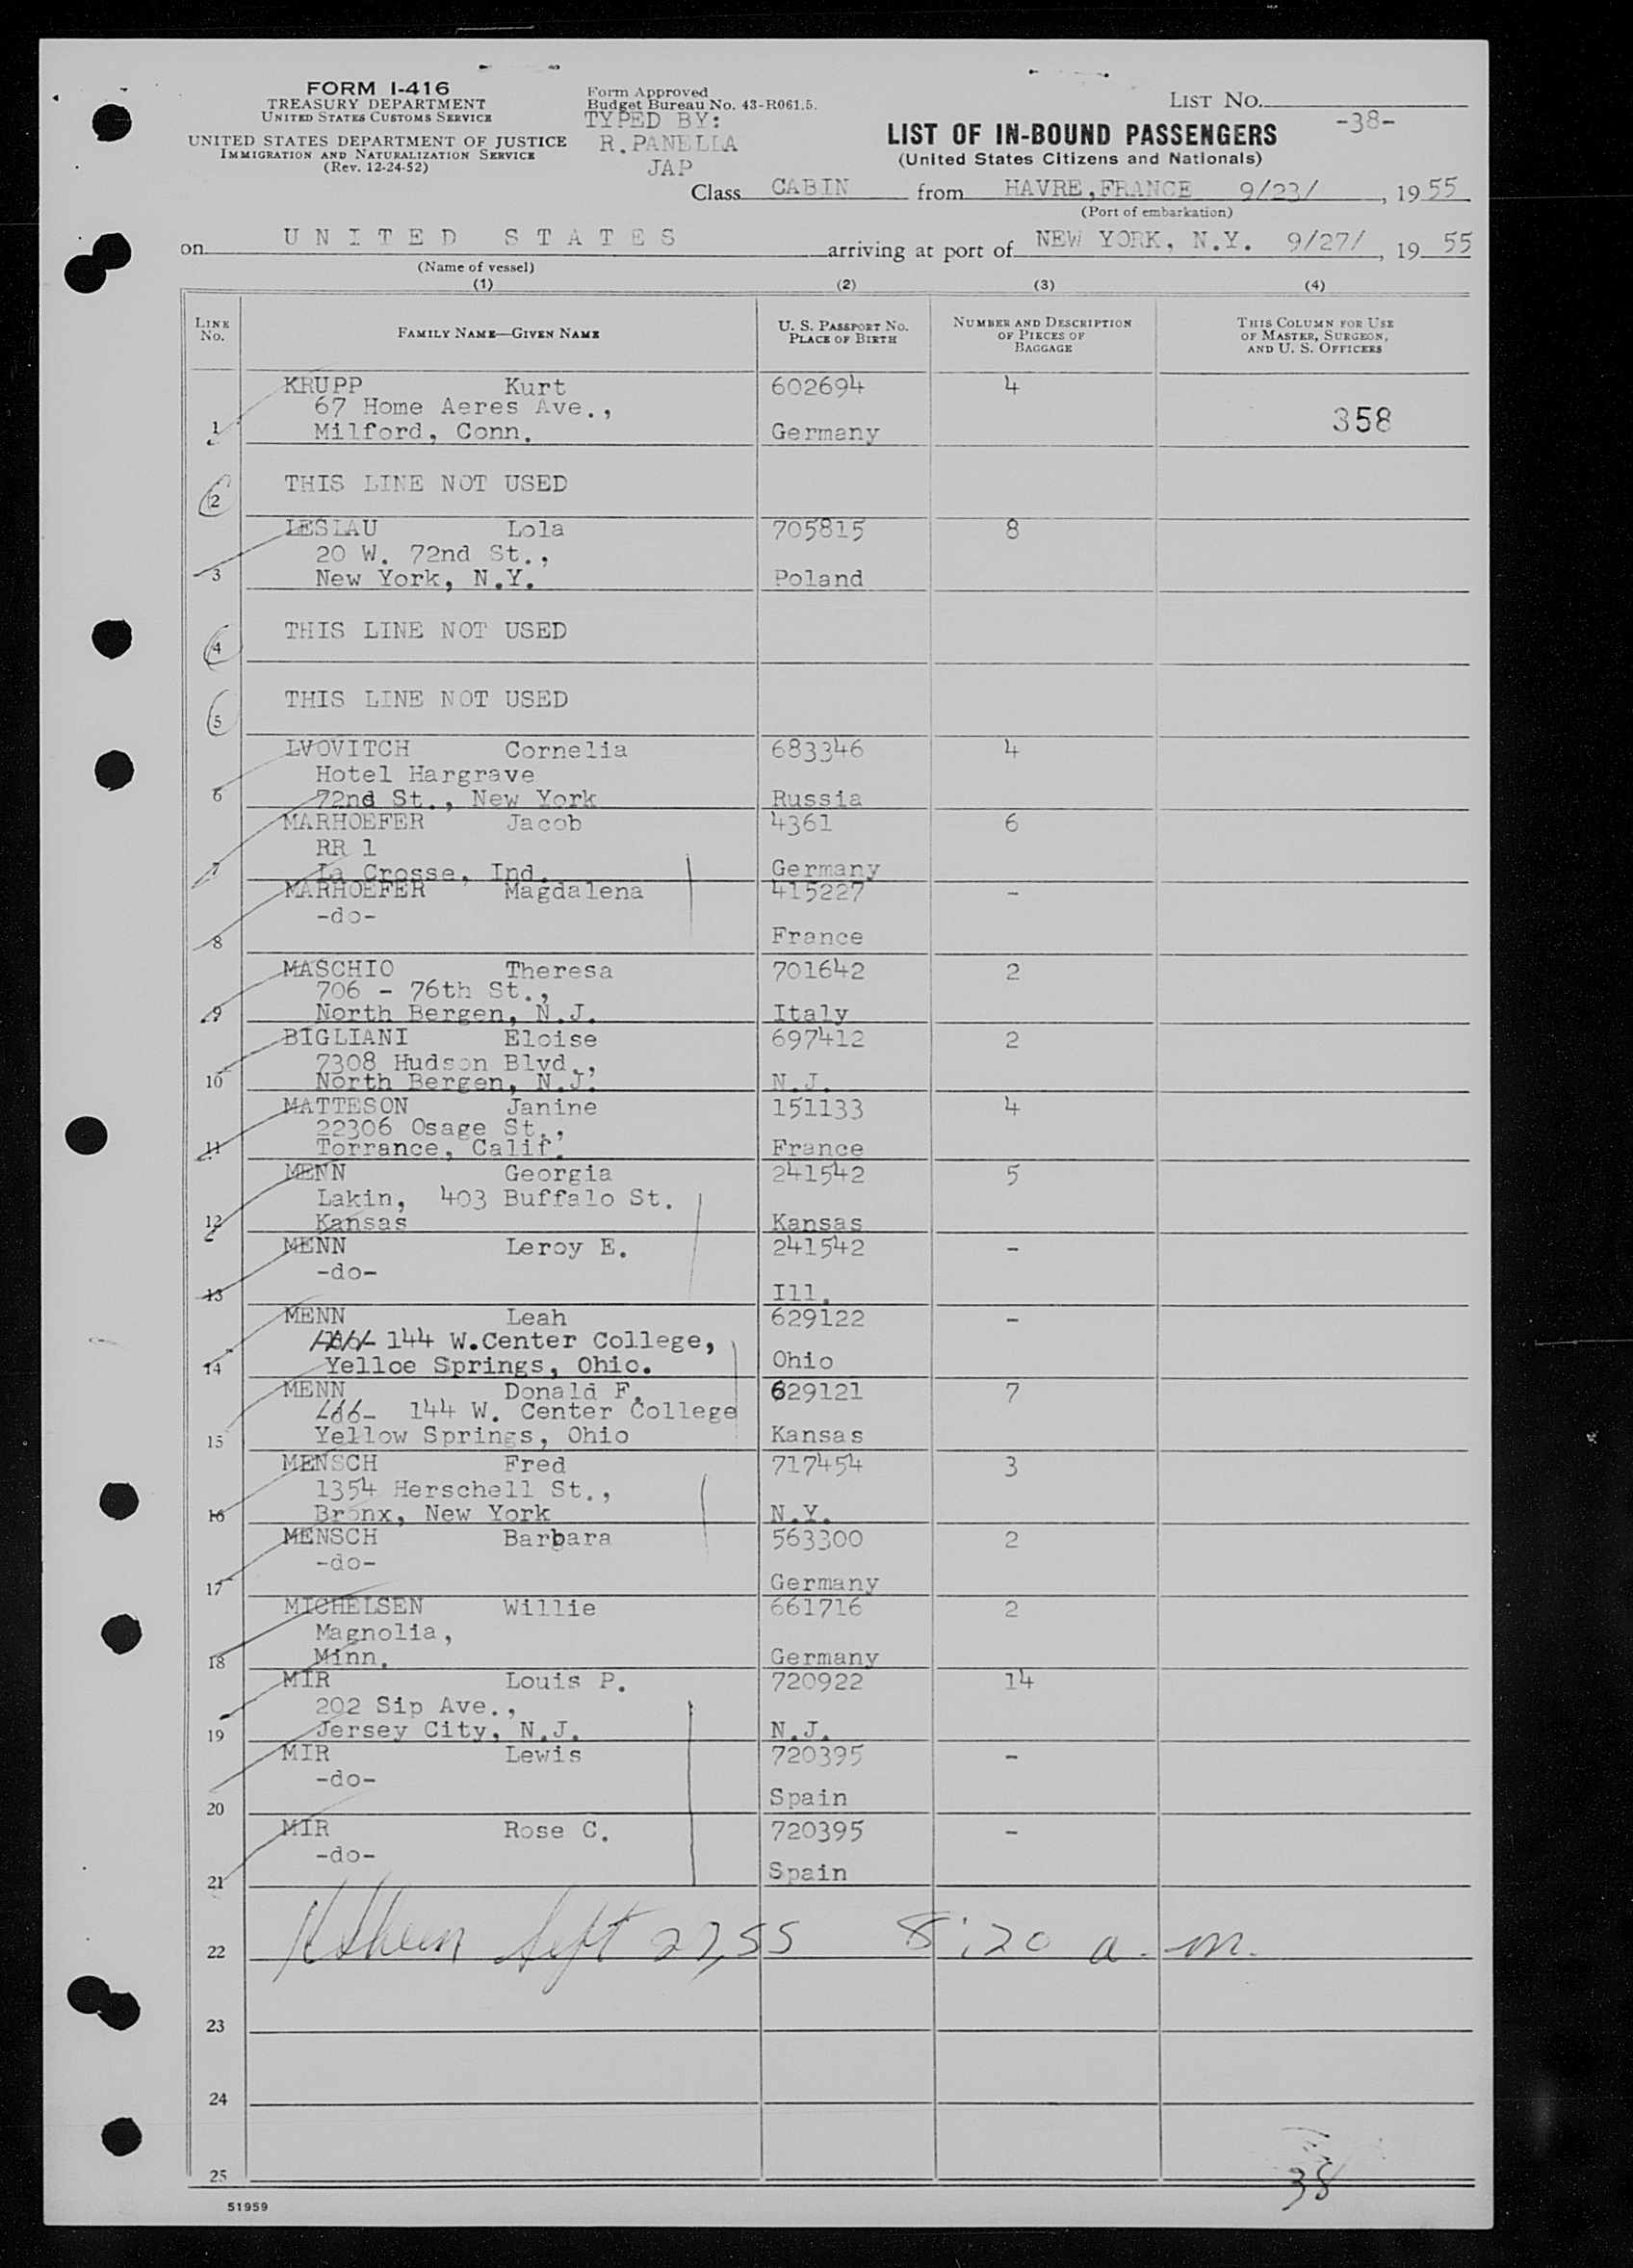 FORM I-416
TREASURY DEPARTMENT
UNITED STATES CUSTOMS SERVICE
UNITED STATES DEPARTMENT OF JUSTICE
IMMIGRATION AND NATURALIZATION SERVICE
(Rev. 12-24-52)
Form Approved
Budget Bureau No. 43-R061.5.
TYPED BY:
R.PANELLA
JAP
LIST NO.
-38-
LIST OF IN-BOUND PASSENGERS
(United States Citizens and Nationals)
Class CABIN from HAVRE,FRANCE 9/23/, 1955
(Port of embarkation)
on UNITED STATES arriving at port of NEW YORK, N.Y. 9/27/, 19 55
(Name of vessel)
(1) (2) (3) (4)
LINE NO. FAMILY NAME—GIVEN NAME U. S. PASSPORT NO. PLACE OF BIRTH NUMBER AND DESCRIPTION OF PIECES OF BAGGAGE THIS COLUMN FOR USE OF MASTER, SURGEON, AND U. S. OFFICERS
KRUPP Kurt 602694 4
67 Home Aeres Ave.,
358
1 Milford, Conn. Germany
2 THIS LINE NOT USED
LESLAU Lola 705815 8
20 W. 72nd St.,
3 New York, N.Y. Poland
4 THIS LINE NOT USED
5 THIS LINE NOT USED
LVOVITCH Cornelia 683346 4
Hotel Hargrave
6 72nd St., New York Russia
MARHOEFER Jacob 4361 6
RR 1
7 La Crosse, Ind. Germany
MARHOEFER Magdalena 415227 -
-do-
8 France
MASCHIO Theresa 701642 2
706 - 76th St.,
9 North Bergen, N.J. Italy
BIGLIANI Eloise 697412 2
7308 Hudson Blvd.,
10 North Bergen, N.J. N.J.
MATTESON Janine 151133 4
22306 Osage St.,
11 Torrance, Calif. France
MENN Georgia 241542 5
Lakin, 403 Buffalo St.
12 Kansas Kansas
MENN Leroy E. 241542 -
-do-
13 Ill.
MENN Leah 629122 -
144 W.Center College,
14 Yelloe Springs, Ohio. Ohio
MENN Donald F. 629121 7
144 W. Center College
15 Yellow Springs, Ohio Kansas
MENSCH Fred 717454 3
1354 Herschell St.,
16 Bronx, New York N.Y.
MENSCH Barbara 563300 2
-do-
17 Germany
MICHELSEN Willie 661716 2
Magnolia,
18 Minn. Germany
MIR Louis P. 720922 14
202 Sip Ave.,
19 Jersey City, N.J. N.J.
MIR Lewis 720395 -
-do-
20 Spain
MIR Rose C. 720395 -
-do-
21 Spain
22 Sept 27,55 8:20 a.m.
23
24
25
38
51959